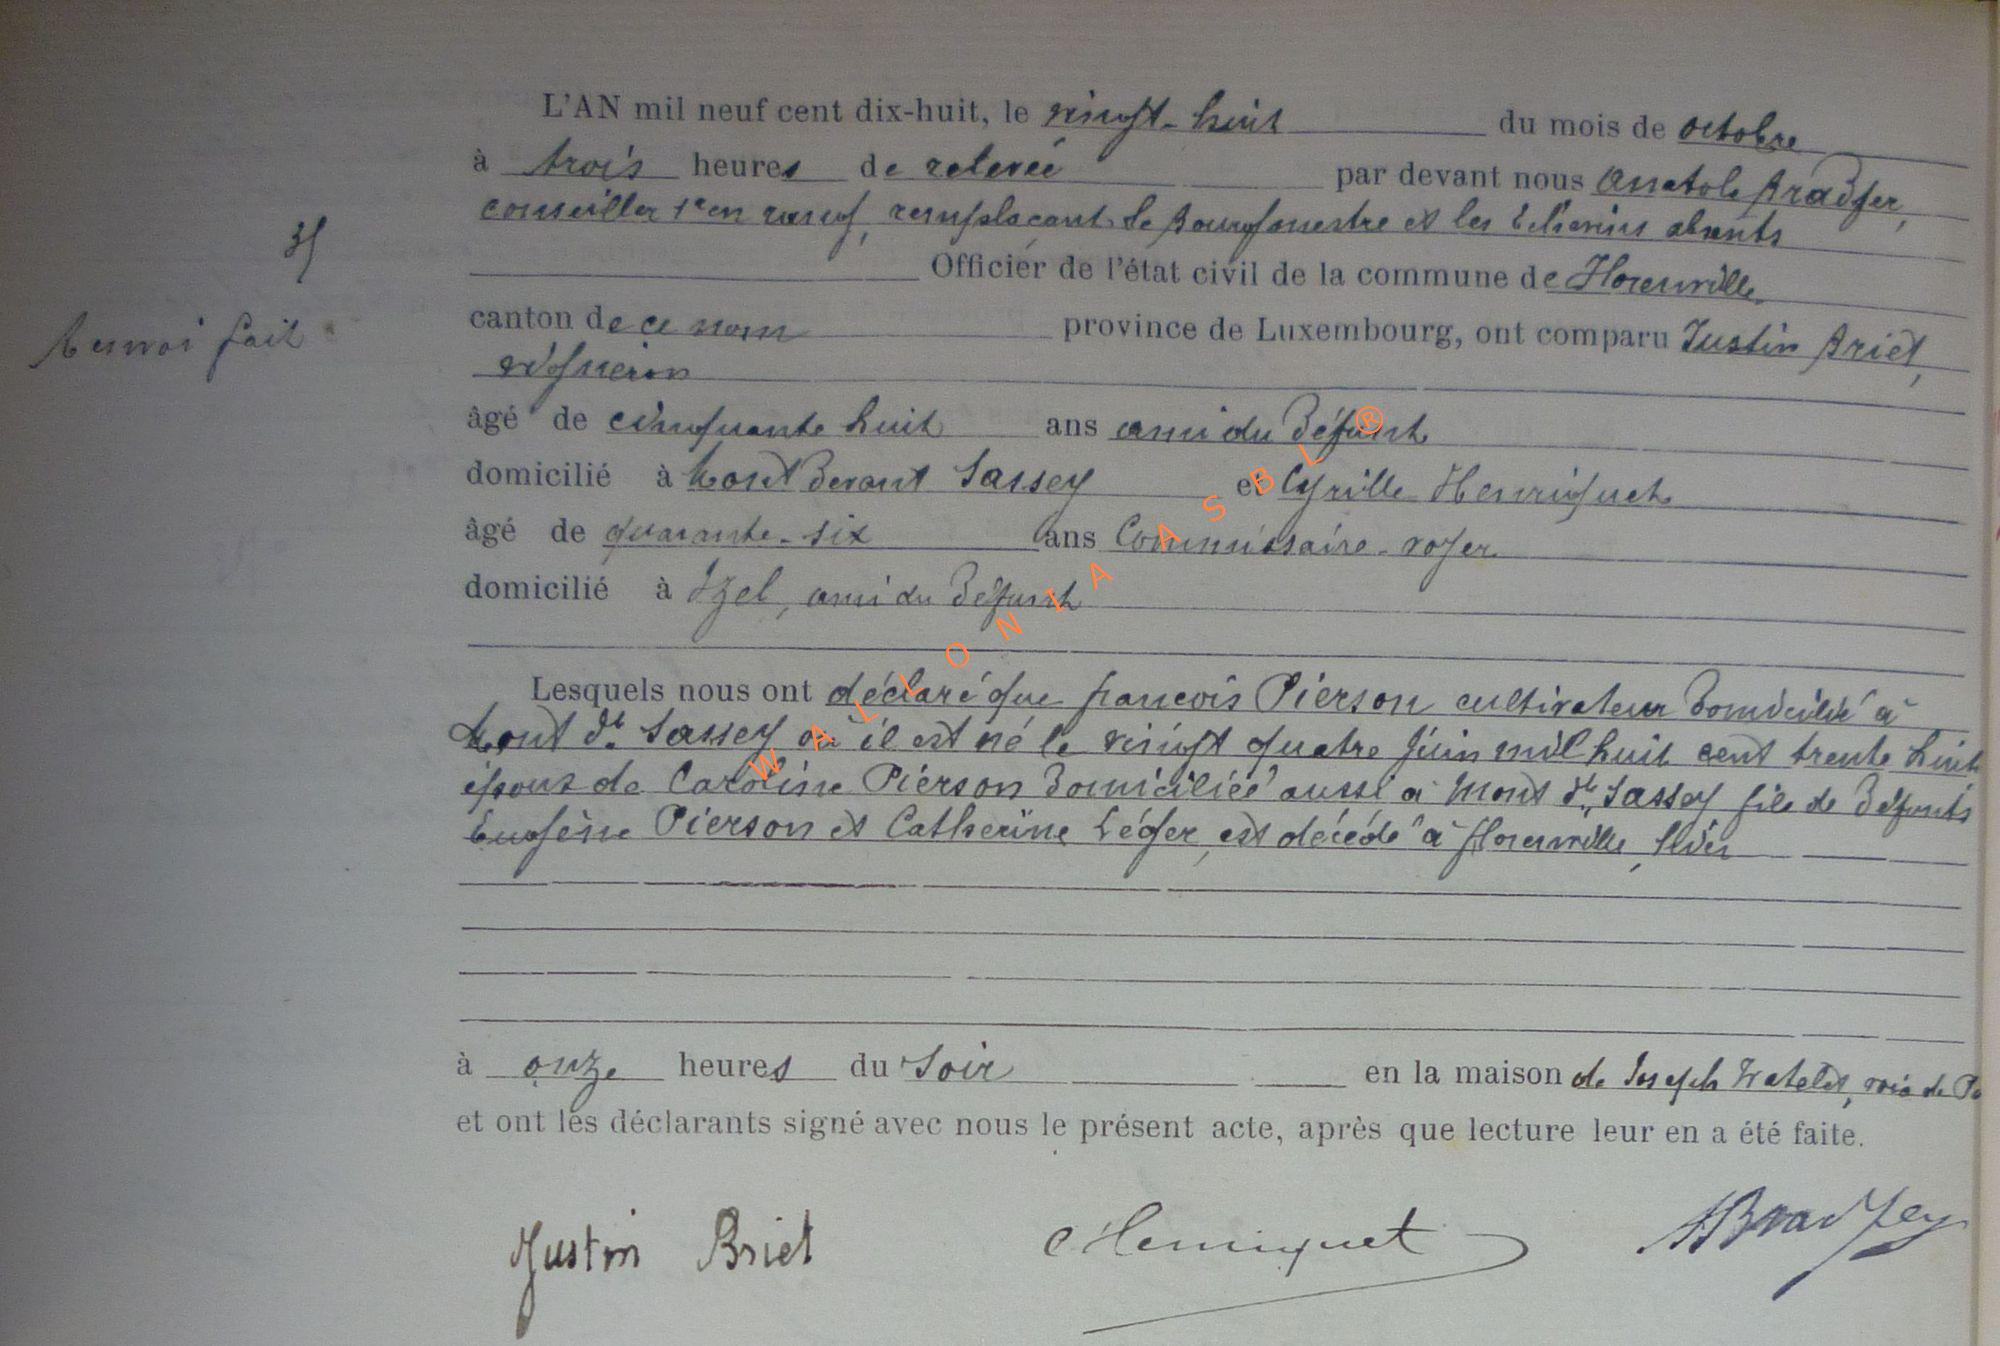 L'AN mil neuf cent dix-huit, le vingt-huit du mois de octobre
à trois heures de relevée par devant nous Anatole Bradfer,
conseiller 1er en rang, remplaçant le Bourgmestre et les Echevins absents
35
Officier de l'état civil de la commune de Florenville
Renvoi fait
canton de ce nom province de Luxembourg, ont comparu Justin Briet,
vigneron
âgé de cinquante huit ans ami du défunt
domicilié à Mont devant Sassey et Cyrille Henriquet
âgé de quarante-six ans Commissaire-voyer
domicilié à Izel, ami du défunt
Lesquels nous ont déclaré que François Pierson cultivateur domicilié à
Mont dt Sassey où il est né le vingt quatre juin mil huit cent trente huit
époux de Caroline Pierson domiciliée aussi à Mont dt Sassey fils de défunts
Eugène Pierson et Catherine Léger, est décédé à Florenville, hier
à onze heures du soir en la maison de Joseph, voie de
et ont les déclarants signé avec nous le présent acte, après que lecture leur en a été faite.
Justin Briet C Henriquet ABradfer
WALLONIA ASBL®